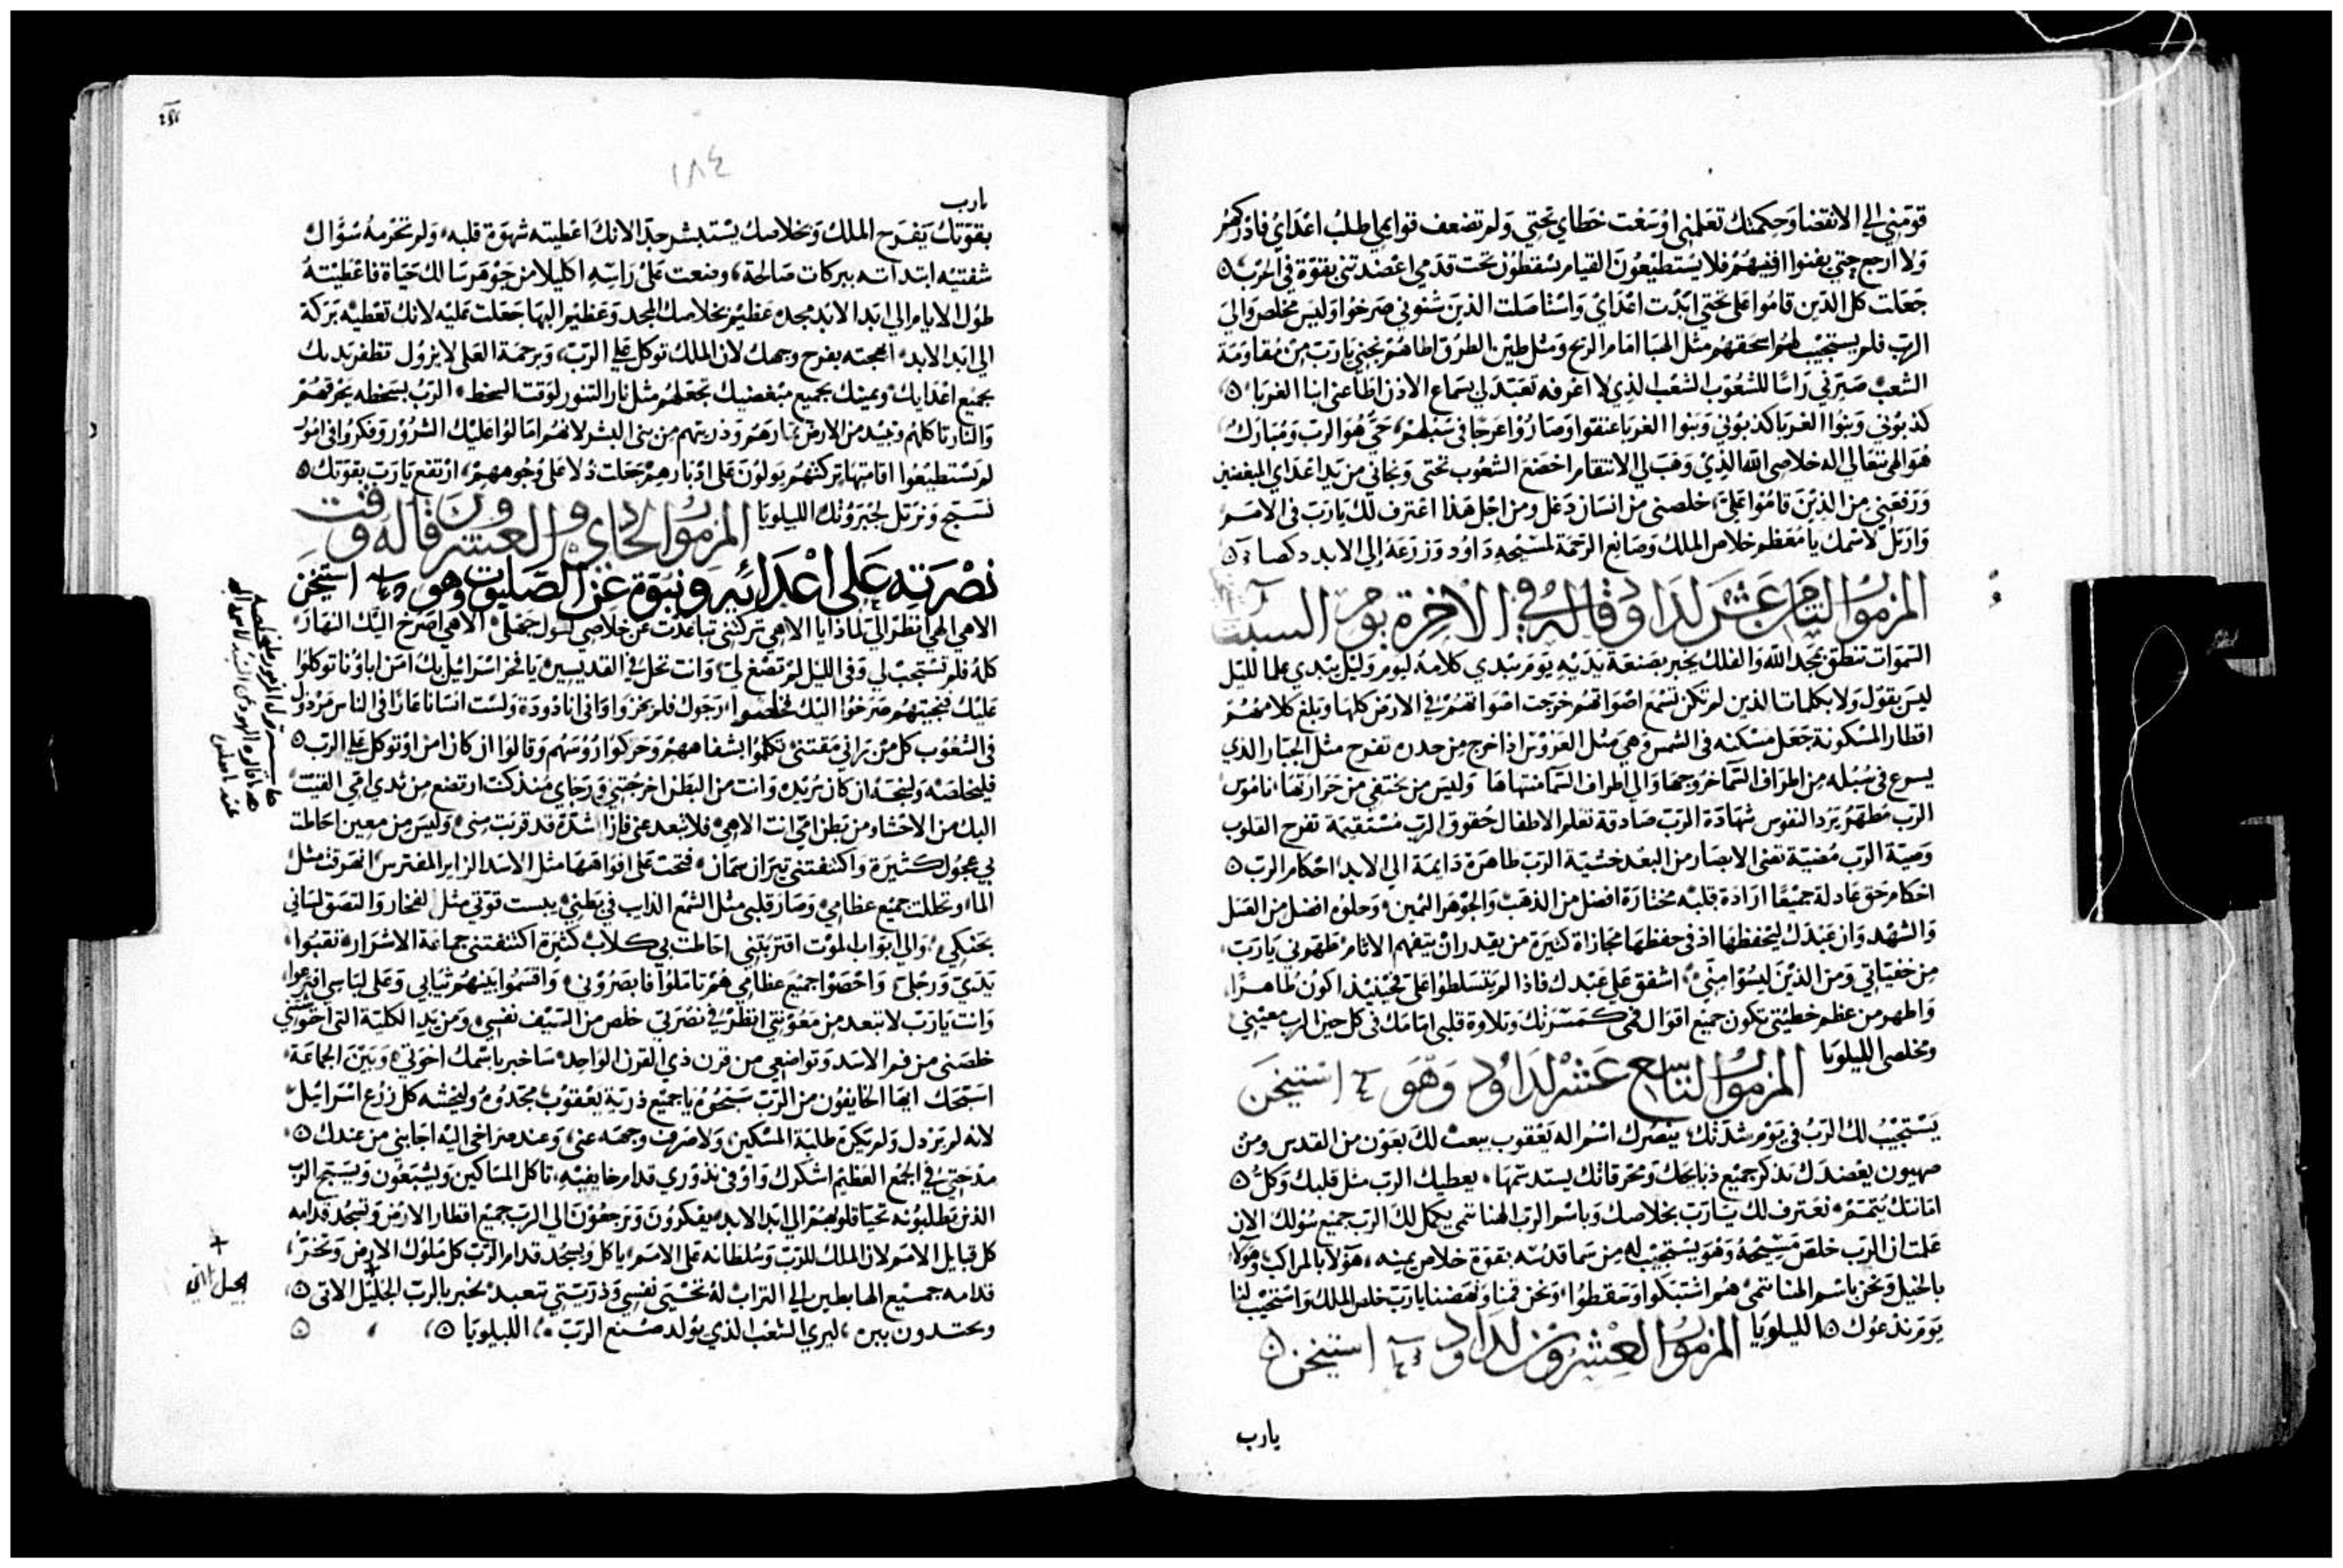 قومتني الي الانقضا وحكمتك تعلمني اوسعت خطاي تحتي ولم تضعف قوايمي اطلب اعداي فادركهم
ولا ارجع حتي يفنوا افنيهم فلا يستطيعون القيام يسقطون تحت قدمي اعضدتني بقوة في الحرب
جعلت كل الذين قاموا على تحتي ابدت اعداي واستاصلت الذين شنوني صرخوا وليس مخلص والي
الرب فلم يستجيب لهم اسحقهم مثل الهبا امام الريح ومثل طين الطرق اطاهم نجني يارب من مقاومة
الشعب صيرني راسا للشعوب الشعب الذي لا اعرفه تعبد لي بسماع الاذن اطاعني ابنا الغربا
كذبوني وبنوا الغربا كذبوني وبنوا الغربا عتقوا وصاروا عرجا في سبلهم حي هو الرب ومبارك
هو الهي تعالي اله خلاصي الله الذي وهب لي الانتقام اخضع الشعوب تحتي ونجاني من يد اعداي المبغضين
ورفعني من الذين قاموا علي خلصني من انسان دغل ومن اجل هذا اعترف لك يارب في الامم
وارتل لاسمك يا معظم خلاص الملك وصانع الرحمة لمسيحه داود وزرعه الي الابد
المزمور الثامن عشر لداود قاله في الاخرة يوم السبت
السموات تنطق بمجد الله والفلك يخبر بصنعة يديه يوم يبدي كلامه ليوم وليل يبدي علما لليل
ليس بقول ولا بكلمات الذين لم تكن تسمع اصواتهم خرجت اصواتهم في الارض كلها وبلغ كلامهم
اقطار المسكونة جعل مسكنه في الشمس وهي مثل العروس اذا خرج من خدره تفرح مثل الجبار الذي
يسرع في سبله من اطراف السما خروجها والي اطراف السما منتهاها وليس من يختفي من حرارتها ناموس
الرب مطهر يرد النفوس شهادة الرب صادقة تعلم الاطفال حقوق الرب مستقيمة تفرح القلوب
وصية الرب مضية تضي الابصار من البعد خشية الرب طاهرة دايمة الي الابد احكام الرب
احكام حق عادلة جميعا ارادة قلبه مختارة افضل من الذهب والجوهر الثمين وحلوه افضل من العسل
والشهد وان عبدك ليحفظها اذ في حفظها مجازاة كثيرة من يقدر ان يتفهم الاثام طهرني يارب
من خفياتي ومن الذين ليسوا مني اشفق علي عبدك فاذا لم يتسلطوا علي فحينيذ اكون طاهرا
واطهر من عظم خطيتي تكون جميع اقوال فمي كمسرتك وتلاوة قلبي امامك في كل حين الرب معيني
ومخلصي الليلويا المزمور التاسع عشر لداود وهو استيخن
يستجيب لك الرب في يوم شدتك ينصرك اسم اله يعقوب يبعث لك بعون من القدس ومن
صهيون يعضدك يذكر جميع ذبايحك ومحرقاتك يستدسمها يعطيك الرب مثل قلبك وكل
امانتك يتممه نعترف لك يارب بخلاصك وباسم الرب الهنا ننمي يكمل لك الرب جميع سولك الان
علمت ان الرب خلص مسيحه وهو يستجيب له من سما قدسه بقوة خلاص يمينه هولا بالمراكب وهولا
بالخيل ونحن باسم الهنا ننمي هم اشتبكوا وسقطوا ونحن قمنا ونهضنا يارب خلص الملك واستجيب لنا
يوم ندعوك الليلويا المزمور العشرون لداود استيخن
يارب
١٨٤
يارب
بقوتك يفرح الملك وبخلاصك يستبشر جدا لانك اعطيته شهوة قلبه ولم تحرمه سوال
شفتيه ابتداته ببركات صالحة وضعت علي راسه اكليلا من جوهر سالك حياة فاعطيته
طول الايام الي ابد الابد مجده عظيم بخلاصك المجد وعظيم البها جعلت عليه لانك تعطيه بركة
الي ابد الابد ابهجته بفرح وجهك لان الملك توكل علي الرب وبرحمة العلي لا يزول تظفر يدك
بجميع اعدايك ويمينك بجميع مبغضيك تجعلهم مثل نار التنور لوقت السخط الرب بسخطه يحرقهم
والنار تاكلهم وتبيد من الارض ثمارهم وذريتهم من بني البشر لانهم امالوا عليك الشرور وفكروا في امور
لم يستطيعوا اقامتها تركتهم يولون على ادبارهم جعلت ذلا على وجوههم ارتفع يارب بقوتك
نسبح ونرتل لجبروتك الليلويا المزمور الحادي والعشرون قاله وقت
نصرته على اعدائه ونبوة عن الصليب وهو استيخن
الاهي الهي انظر الي لماذا يا الاهي تركتني تباعدت عن خلاصي لسول جهلي الاهي اصرخ اليك النهار
كله فلم تستجيب لي وفي الليل لم تصغ لي وانت تحل في القديسين يا فخر اسراييل بك امن اباونا توكلوا
عليك فنجيتهم صرخوا اليك فخلصوا رجوك فلم يخزوا وافاني انا دودة ولست انسانا عارا في الناس مرذول
في الشعوب كل من يراني مقتني تكلموا بشفاههم وحركوا رووسهم وقالوا ان كان امن او توكل علي الرب
فليخلصه ولينجه ان كان يريده وانت من البطن اخرجتني ورجاي منذ كنت ارتضع من ثدي امي القيت
اليك من الاحشاء ومن بطن امي انت الاهي فلا تبعد عني فان الشدة قد قربت مني وليس من معين احاطت
بي عجول كثيرة واكتنفتني تيران سمان فتحت على افواهها مثل الاسد الزاير المفترس انهرقت مثل
الماء وتخللت جميع عظامي وصار قلبي مثل الشمع الذايب في بطني يبست قوتي مثل الفخار والتصق لساني
بحنكي والي ابواب الموت اقتربتني احاطت بي كلاب كثيرة اكتنفتني جماعة الاشرار ثقبوا
يدي ورجلي واحصوا جميع عظامي هم تاملوا فابصروني واقتسموا بينهم ثيابي وعلى لباسي اقترعوا
وانت يارب لا تبعد من معونتي انظر في نصرتي خلص من السيف نفسي ومن يد الكلبة التي احتوشتني
خلصني من فم الاسد وتواضعي من قرن ذي القرن الواحد ساخبر باسمك اخوتي وبين الجماعة
اسبحك ايها الخايفون من الرب سبحوه يا جميع ذرية يعقوب مجدوه وليخشه كل زرع اسراييل
لانه لم يرذل ولم يكره طلبة المسكين ولا صرف وجهه عني وعند صراخي اليه اجابني من عندك
مدحتي في الجمع العظيم اشكرك واوفي نذوري قدام خايفيه تاكل المساكين ويشبعون ويسبح الرب
الذين يطلبونه تحيا قلوبهم الي ابد الابد يفكرون ويرجعون الي الرب جميع اقطار الارض وتسجد قدامه
كل قبايل الامم لان الملك للرب وسلطانه على الامم ياكل ويسجد قدام الرب كل ملوك الارض وتخر
قدامه جميع الهابطين الي التراب له تحيي نفسي وذريتي تتعبد يخبر بالرب الجيل الاتي
ويحتدون ببره ليري الشعب الذي يولد صنع الرب الليلويا
الجيل الاتي